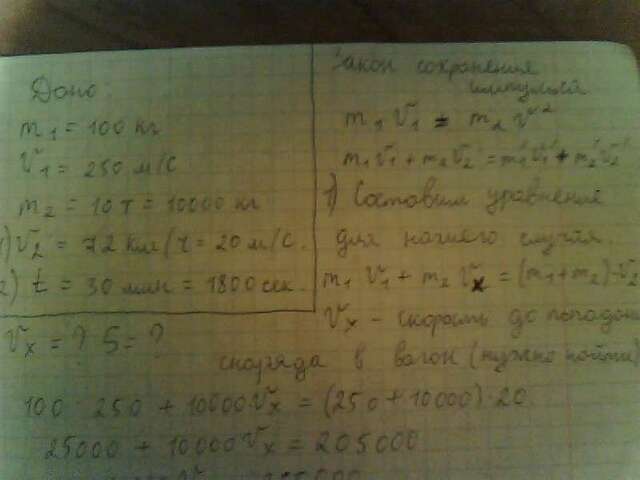 Дано
m₁ = 100 кг
V₁ = 250 м/с
m₂ = 10 т = 10000 кг
1) V₂ = 72 км/ч = 20 м/с.
2) t = 30 мин = 1800 сек.
Vₓ = ? S = ?
Закон сохранения
импульса
m₁ V₁ = m₂ V₂
m₁V₁ + m₂V₂ = m₁'V₁' + m₂'V₂'
1) Составим уравнение
для нашего случая.
m₁ V₁ + m₂ Vₓ = (m₁+m₂)·V₂
Vₓ - скорость до попадан
снаряда в вагон (нужно найти)
100 · 250 + 10000Vₓ = (250 + 10000)·20
25000 + 10000Vₓ = 205000